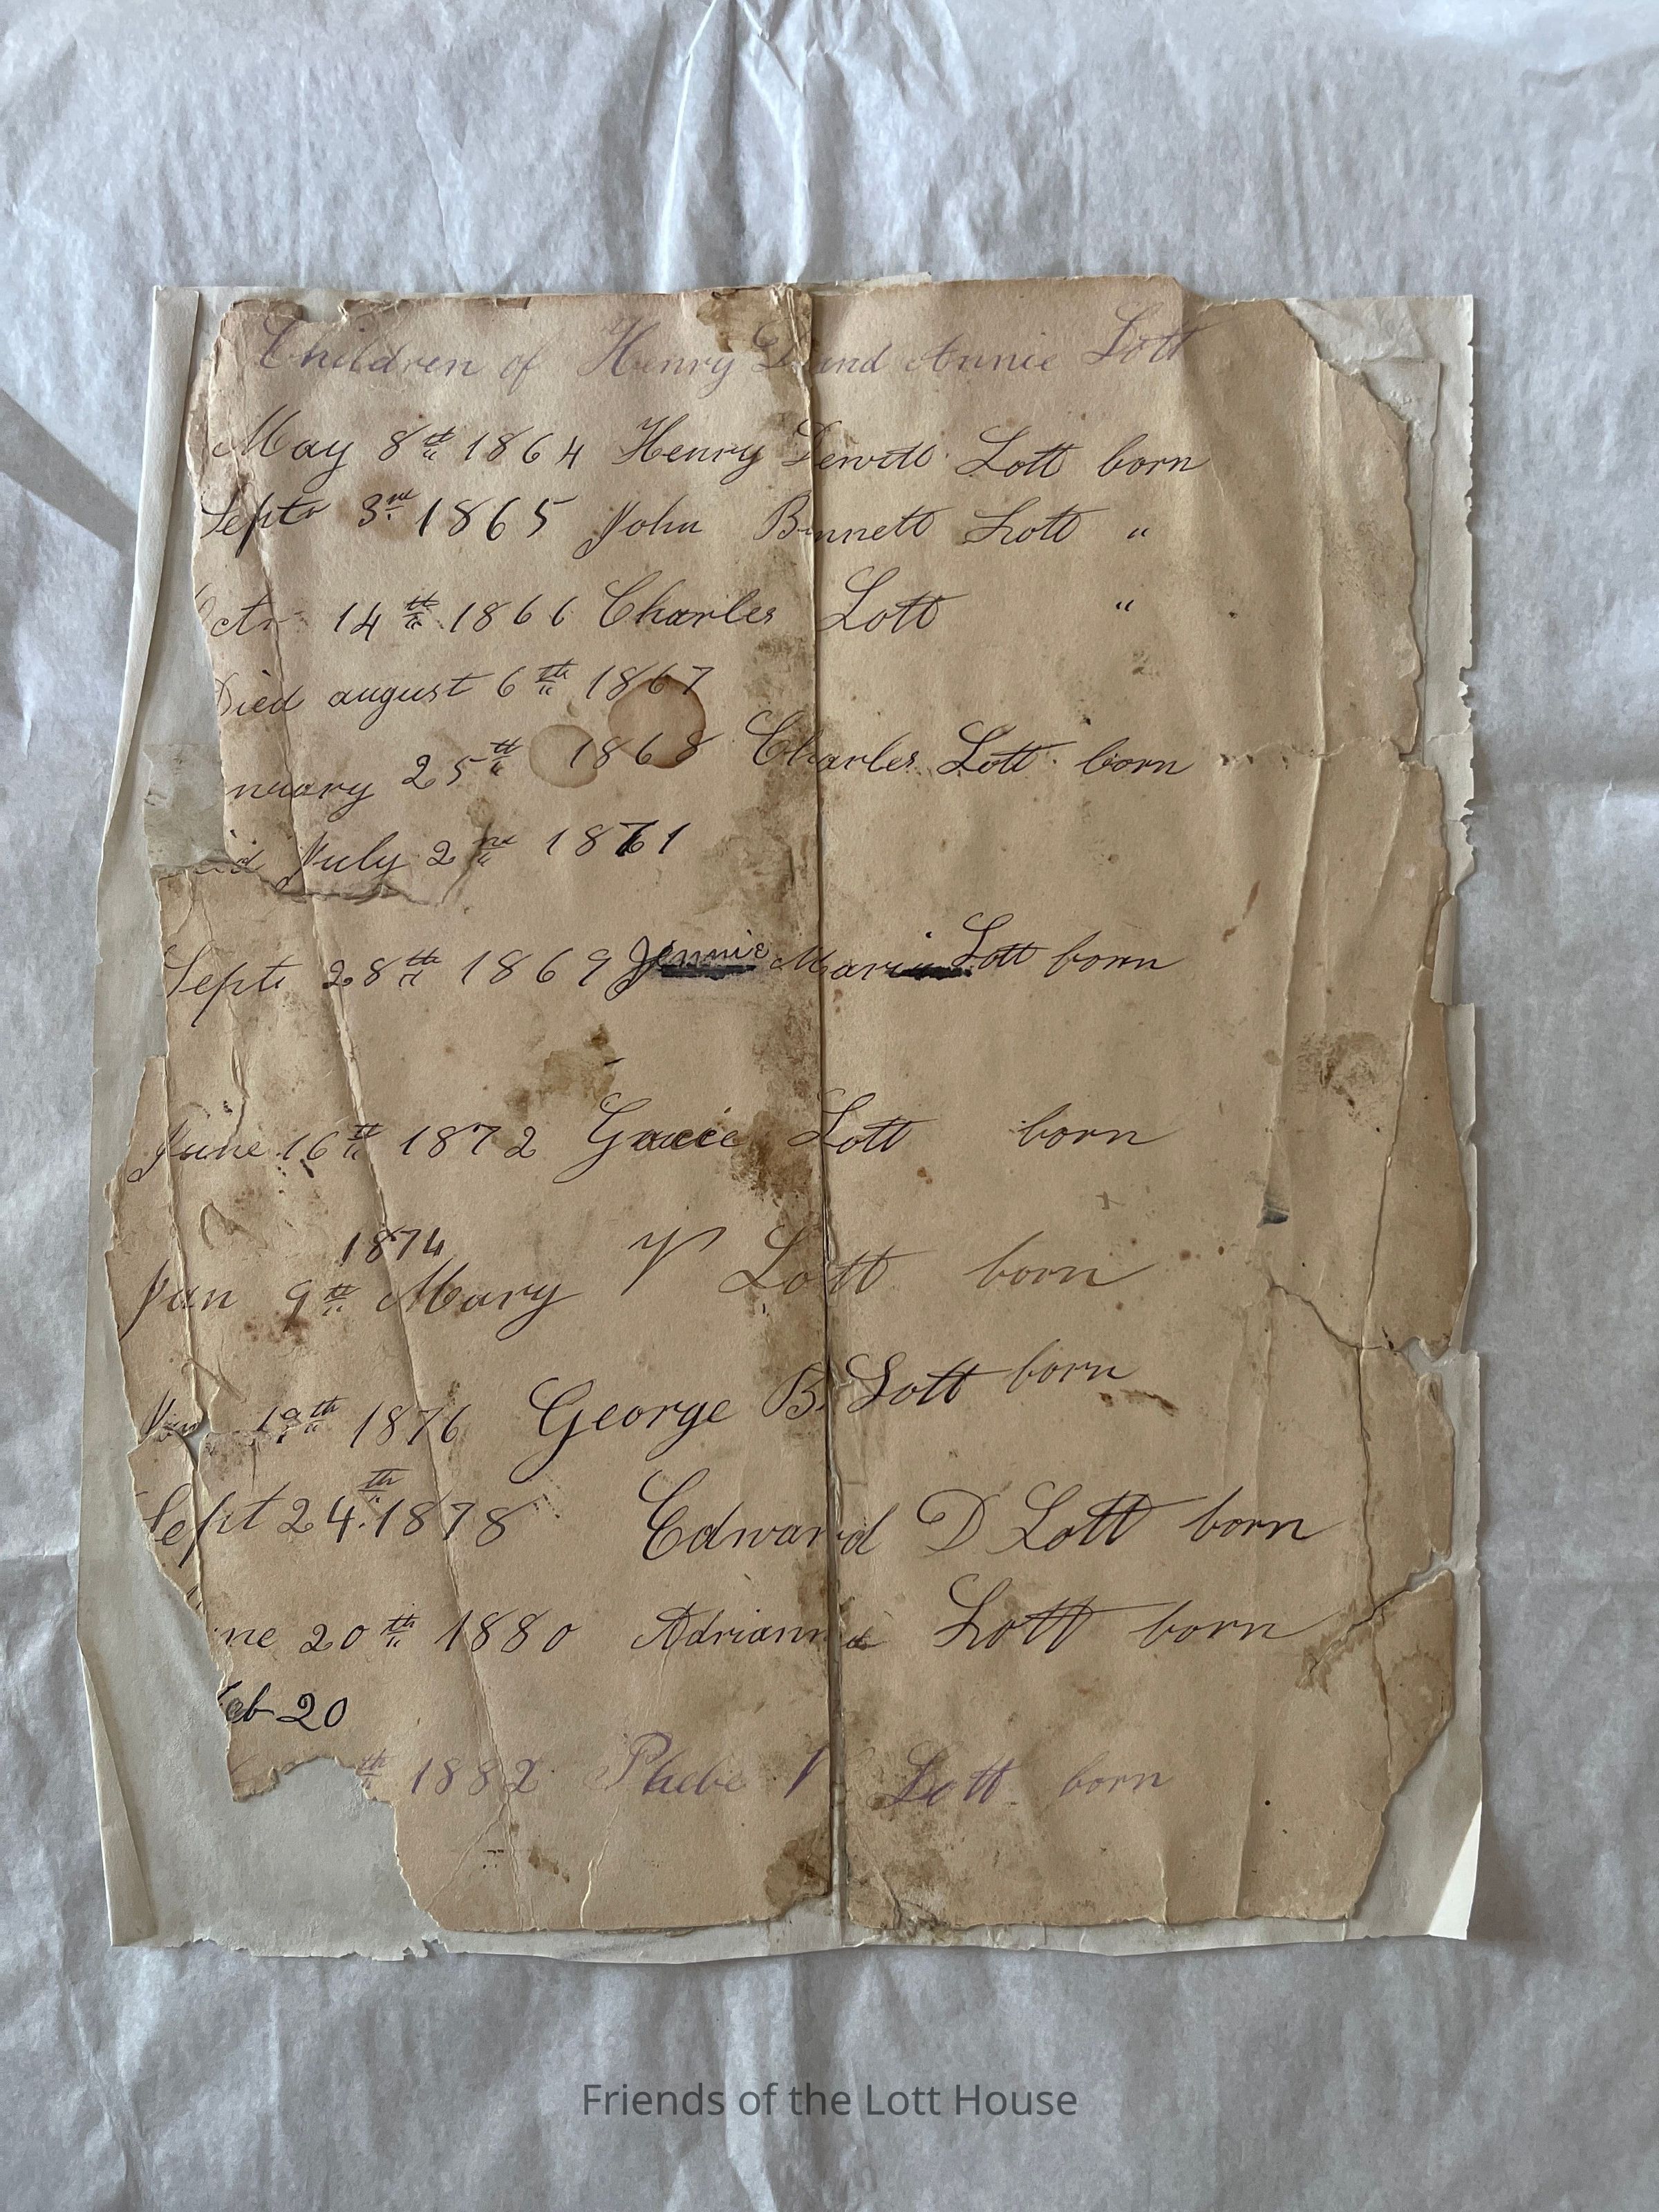 Children of Henry D and Annie Lott
May 8th 1864 Henry Dewitt Lott born
Septr 3rd 1865 John Bennett Lott "
Octr 14th 1866 Charles Lott "
Died august 6th 1867
nuary 25th 1868 Charles Lott born
July 2nd 1871
Septr 28th 1869 Jennie Maria Lott born
June 16th 1872 Gracie Lott born
1874
Jan 9th Mary V Lott born
19th 1876 George B. Lott born
Sept 24th 1878 Edward D Lott born
ne 20th 1880 Lott born
eb 20
th 1882 Phebe Lott born
Friends of the Lott House